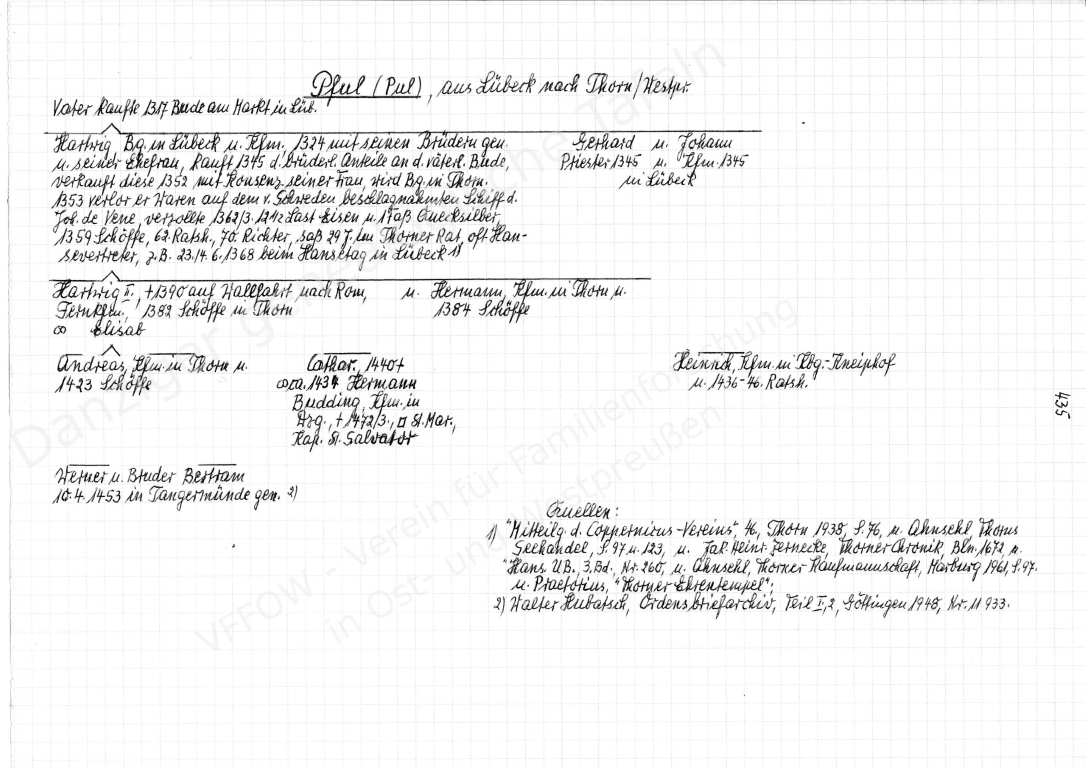 Pful (Pul), aus Lübeck nach Thorn/Westpr.
Vater kaufte 1317 Bude am Markt in Lüb.
Hartwig Bg. in Lübeck u. Kfm., 1324 mit seinen Brüdern gen.
u. seiner Ehefrau, kauft 1345 d. brüderl. Anteile an d. väterl. Bude,
verkauft diese 1352 mit Konsenz seiner Frau, wird Bg. in Thorn.
1353 verlor er Waren auf dem v. Schweden beschlagnahmten Schiff d.
Joh. de Vene, verzollte 1362/3. 12½ Last Eisen u. 1 Faß Quecksilber,
1359 Schöffe, 62. Ratsh., 70. Richter, saß 29 J. im Thorner Rat, oft Han-
severtreter, z.B. 23.14.6.1368 beim Hansetag in Lübeck 1)
Gerhard u. Johann
Priester 1345 u. Kfm. 1345
in Lübeck
Hartwig II., +1390 auf Wallfahrt nach Rom,
Fernkfm., 1382 Schöffe in Thorn
∞ Elisab
u. Hermann, Kfm. in Thorn u.
1384 Schöffe
Andreas, Kfm. in Thorn u.
1423 Schöffe
Cathar., 1440+
∞ca. 1434 Hermann
Budding, Kfm. in
Dzg., +1472/3., □ St. Mar.,
Kap. St. Salvator
Heinrich, Kfm. in Kbg.-Kneiphof
u. 1436-46. Ratsh.
435
Werner u. Bruder Bertram
10.4.1453 in Tangermünde gen. 2)
Quellen:
1) "Mitteilg. d. Coppernicus-Vereins", 46, Thorn 1938, S.76, u. Ahnsehl, Thorns
Seehandel, S.97 u. 123, u. Jak. Heinr. Zernecke, Thorner Chronik, Bln. 1672, u.
"Hans. UB., 3. Bd., Nr. 260, u. Ahnsehl, Thorner Kaufmannschaft, Marburg 1961, S.97.
u. Praetorius, "Thorner Ehrentempel";
2) Walter Hubatsch, Ordensbriefarchiv, Teil I,2, Göttingen 1948, Nr. 11 933.
Danziger genealogische Tafeln
VFFOW - Verein für Familienforschung
in Ost- und Westpreußen